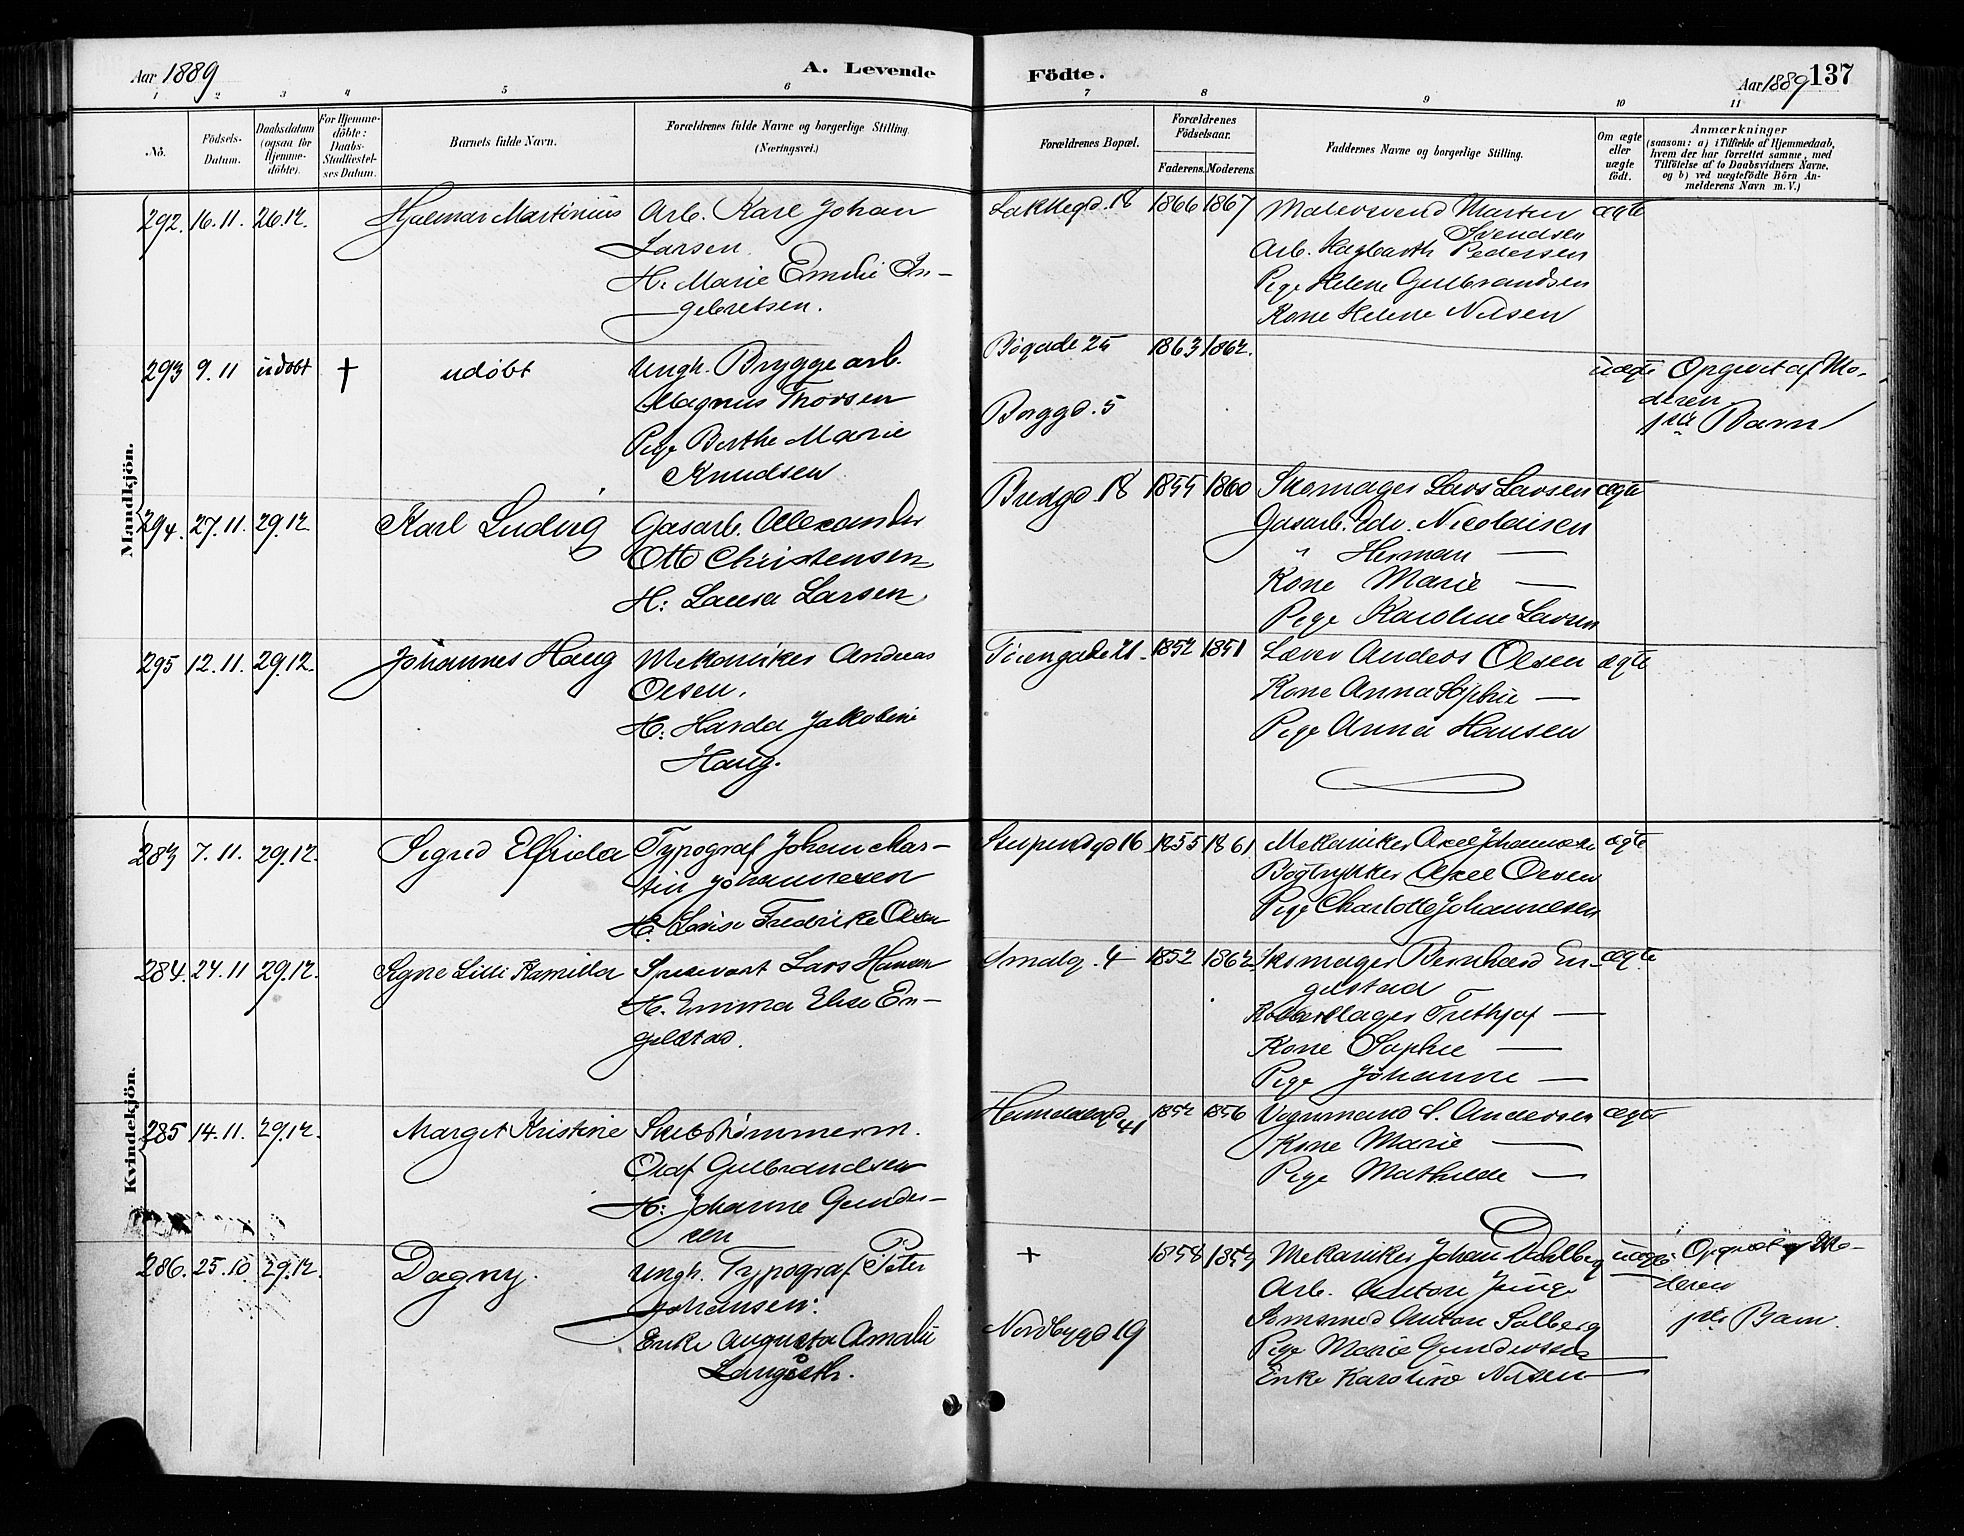 Aar 1889
A. Levende
Födte.
Aar 1889
137
1 2 3 4 5 6 7 8 9 10 11
No.
Födsels-
Datum.
Daabsdatum
(ogsaa for
Hjemme-
döbte).
For Hjemme-
döbte:
Daabs-
Stadfæstel-
ses Datum.
Barnets fulde Navn.
Forældrenes fulde Navne og borgerlige Stilling.
(Næringsvei.)
Forældrenes Bopæl.
Forældrenes
Födselsaar.
Faderens. Moderens.
Faddernes Navne og borgerlige Stilling.
Om ægte
eller
uægte
födt.
Anmærkninger
(saasom: a) i Tilfælde af Hjemmedaab,
hvem der har forrettet samme, med
Tilföielse af to Daabsvidners Navne,
og b) ved uægtefödte Börn An-
melderens Navn m. V.)
Mandkjön.
292. 16.11. 26.12. Hjalmar Martinius
Arb. Karl Johan
Larsen.
H: Marie Emilie In-
gebretsen.
Lakkegd. 18 1866 1867
Malersvend Marten
Svendsen
Arb. Hagbarth Pedersen
Pige Helene Gulbrandsen
Kone Helene Nilsen
ægte
293 9.11 udøbt † udøbt
Ungk. Bryggearb.
Magnus Thorsen
Pige Berthe Marie
Knudsen.
Bøgade 25 1863 1862.
Borggd. 5
uægte
Opgivet af Mo-
deren
Barn
294. 27.11. 29.12 Karl Ludvig
Gasarb. Alexander
Otto Christensen
H: Laura Larsen.
Bredgd. 18 1855 1860
Skomager Lars Larsen
Gasarb. Edv. Nicolaisen
" Herman —
Kone Marie —
Pige Karoline Larsen
ægte
295 12.11. 29.12. Johannes Haug
Mekaniker Andreas
Olsen.
H: Harda Jakobine
Haug.
21. 1852 1851
Anders Olsen
Kone Anna Sophie —
Pige Anna Hansen
ægte
Kvindekjön.
283 7.11. 29.12. Sigrid Elfrida
Typograf Johan Mar-
tin Johannesen
H: Lovise Fredrikke Olsen
16 1855 1861.
Mekaniker Axel Johannesen
Bogtrykker Axel Olsen
Pige Charlotte Johannesen
ægte
284. 24.11 29.12. Signe Lilli Kamilla
Lars Hansen
H. Emma Elise En-
gelstad.
Smalg. 4 1852 1862
Skomager Bernhard En-
gelstad
Frethjof —
Kone Sophie —
Pige Johanne —
ægte
285 14.11. 29.12. Margit Kristine
Skibstømmerm.
Olaf Gulbrandsen
H: Johanne Gunder-
sen
41 1852 1856
Vognmand S. Andersen
Kone Marie —
Pige Mathilde —
ægte
286. 25.10. 29.12. Dagny.
Ungk. Typograf Peter
Johansen.
Enke Augusta Amalie
+
Nordbygd 19
1858 1853
Mekaniker Johan Dahlberg
Arb. Anton
Anton Solberg
Pige Marie Gundersen
Enke Karoline Nilsen
uægte
Opgivet af Mo-
deren
Barn.